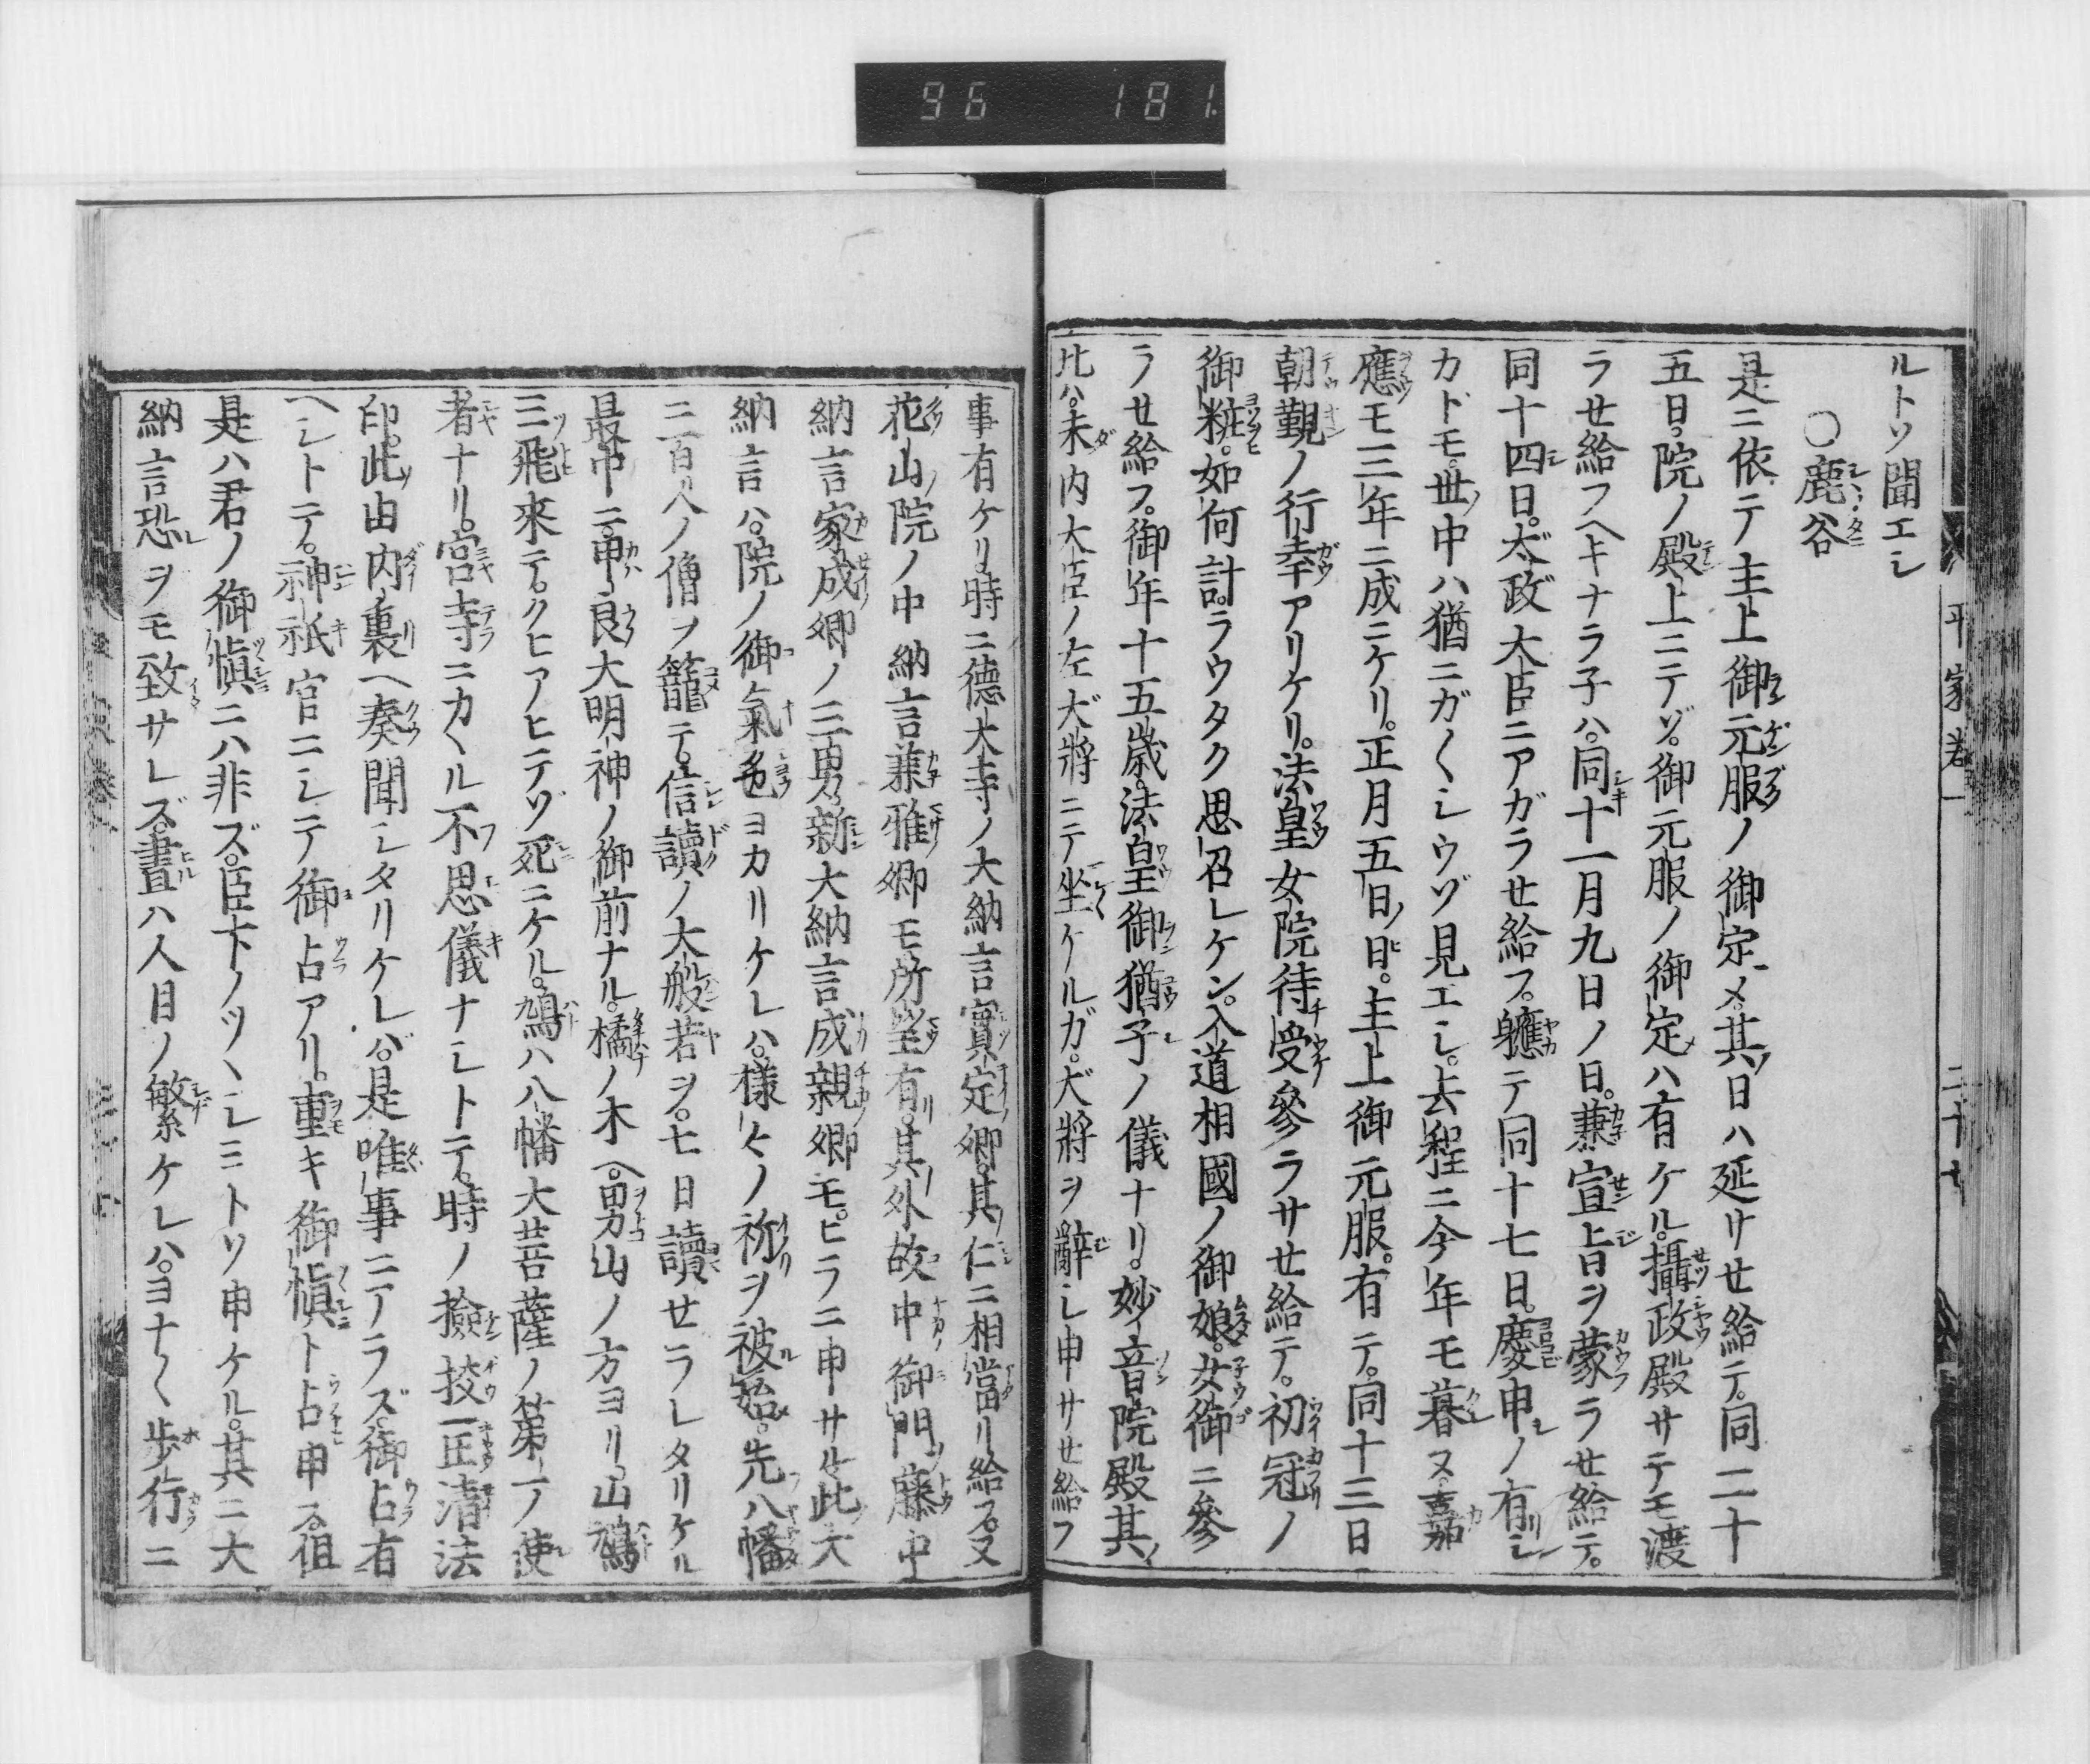 96 181
平家巻一 二十七
ルトソ聞エシ
〇鹿谷
是ニ依テ主上御元服ノ御定メ其日ハ延サせ給テ。同二十
五日。院ノ殿上ニテゾ。御元服ノ御定メハ有ケル。攝政殿サテモ渡
ラせ給フヘキナラ子ハ。同十一月九日ノ日。兼宣旨ヲ蒙ラせ給テ。
同十四日。太政大臣ニアガラせ給フ。軈テ同十七日。慶申ノ有シ
カドモ。世中ハ猶ニガ〱シウゾ見エシ。去程ニ今年モ暮ヌ。嘉
應モ三年ニ成ニケリ。正月五日ノ日。主上御元服有テ。同十三日
朝覲ノ行幸アリケリ。法皇女院待受參ラサせ給テ。初冠ノ
御粧。如何計ラウタク思召レケン。入道相國ノ御娘。女御ニ參
ラせ給フ。御年十五歳。法皇御猶子ノ儀ナリ。妙音院殿其
比ハ。未内大臣ノ左大將ニテ坐ケルガ。大將ヲ辭シ申サせ給フ
事有ケリ時ニ德大寺ノ大納言實定卿。其仁ニ相當リ給フ。又
花山ノ院ノ中納言兼雅卿モ所望有。其外故中御門藤中
納言家成卿ノ三男。新大納言成親卿モ。ヒラニ申サル。此大
納言ハ。院ノ御氣色ヨカリケレハ。樣々ノ祈ヲ被始。先八幡
ニ百人ノ僧ヲ籠テ。信讀ノ大般若ヲ。七日讀せラレタリケル
最中ニ。甲良大明神ノ御前ナル。橘ノ木ヘ。男山ノ方ヨリ山鳩
三飛來テ。クヒアヒテゾ死ニケル。鳩ハ八幡大菩薩ノ第一ノ使
者ナリ。宮寺ニカヽル不思儀ナシトテ。時ノ撿挍匡清法
印。此由内裏ヘ奏聞シタリケレバ。是唯事ニアラズ。御占有
ヘシトテ。神祇官ニシテ御占アリ。重キ御愼ト占申ス。但
是ハ君ノ御愼ニハ非ズ。臣下ノツヽシミトソ申ケル。其ニ大
納言恐ヲモ致サレズ。晝ハ人目ノ繁ケレハ。ヨナ〱歩行ニ